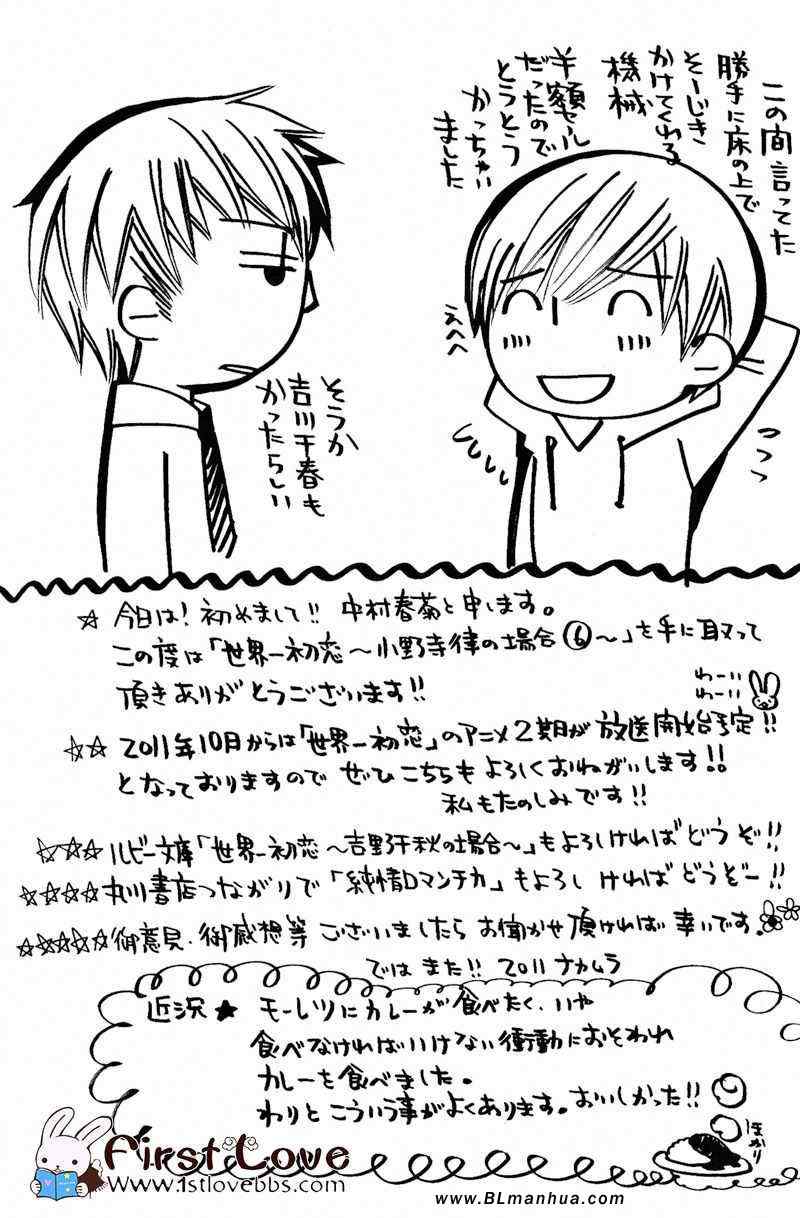 この間言ってた
勝手に床の上で
そーじき
かけてくれる
機械
半額セール
だったので
とうとう
かっちゃい
ました
えへへ
そうか
吉川千春も
かったらしい
☆ 今日は!初めまして!! 中村春菊と申します。
この度は「世界一初恋～小野寺律の場合⑥～」を手に取って
頂きありがとうございます!!
わーい
わーい
☆☆ 2011年10月からは「世界一初恋」のアニメ2期が放送開始予定!!
となっておりますので ぜひこちらもよろしくおねがいします!!
私もたのしみです!!
☆☆☆ ルビー文庫「世界一初恋～吉野千秋の場合～」もよろしければどうぞ!!
☆☆☆☆ 丸川書店つながりで「純情ロマンチカ」もよろしければどうぞー!!
☆☆☆☆☆ 御意見・御感想等 ございましたら お聞かせ頂ければ幸いです。
では また!! 2011 ナカムラ
近況★ モーレツにカレーが食べたく、いや
食べなければいけない衝動におそわれ
カレーを食べました。
わりと こういう事がよくあります。おいしかった!!
ほかり
First Love
www.1stlovebbs.com
www.BLmanhua.com